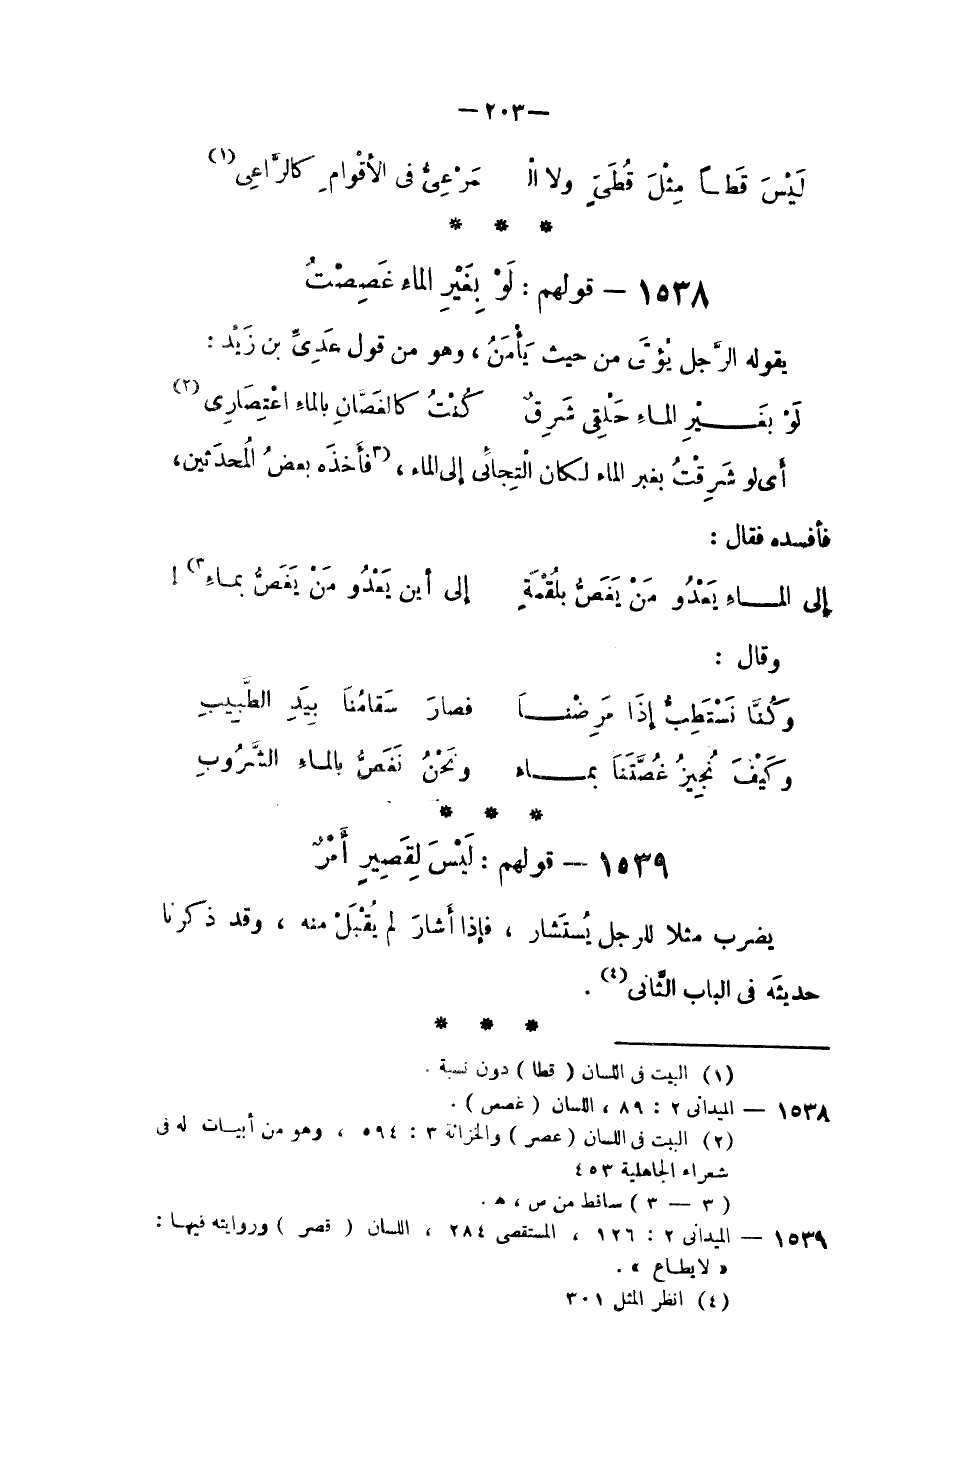 — ٢٠٣ —
لَيْسَ قَطــاً مِثْلَ قُطَىٍّ ولا الْـ مَرْعِىُّ فى الأقْوامِ كالرَّاعِى (١)
* * *
١٥٣٨ — قولهم : لَوْ بِغَيْرِ الماء غَصِصْتُ
يقوله الرَّجل يُؤْتَى من حيث يَأْمَنُ ، وهو من قول عَدِىِّ بن زَيْد :
لَوْ بغَــــيْرِ المـاءِ حَلْقِى شَرِقٌ كُنْتُ كالغَصَّانِ بالماءِ اعْتِصَارِى (٢)
أى لو شَرِقْتُ بغير الماء لكان الْتِجائى إلى الماء ، (٣ فأَخذَه بعضُ الُمحدَثين،
فأفسده فقال :
إلى المــــاءِ يَعْدُو مَنْ يَغَصُّ بلُقْمَةٍ إلى أين يَعْدُو مَنْ يَغَصُّ بمـاءِ ٣) !
وقال :
وَكُنَّا نَسْتَطِبُّ إِذَا مَرِضْنــــاَ فصارَ سَقامُناَ بِيَدِ الطَّبِيبِ
وَكَيْفَ نُجِيزُ غُصَّتَناَ بمــــاء ونَحْنُ نَغَصُّ بالمـاءِ الشَّرُوبِ
* * *
١٥٣٩ — قولهم : لَيْسَ لِقَصِيرٍ أَمْرٌ
يضرب مثلا للرجل يُستَشار ، فإذا أَشارَ لم يُقْبَلْ منه ، وقد ذكرنا
حديثَه فى الباب الثَّانى (٤) .
* * *
(١) البيت فى اللسان ( قطا ) دون نسبة .
١٥٣٨ — الميدانى ٢ : ٨٩ ، اللسان ( غصص ) .
(٢) البيت فى اللسان ( عصر ) والخزانة ٣ : ٥٩٤ ، وهو من أبيـات له فى
شعراء الجاهلية ٤٥٣
( ٣ — ٣ ) ساقط من ص ، هـ .
١٥٣٩ — الميدانى ٢ : ١٢٦ ، المستقصى ٢٨٤ ، اللسان ( قصر ) وروايته فيهـا :
« لا يطـاع » .
(٤) انظر المثل ٣٠١